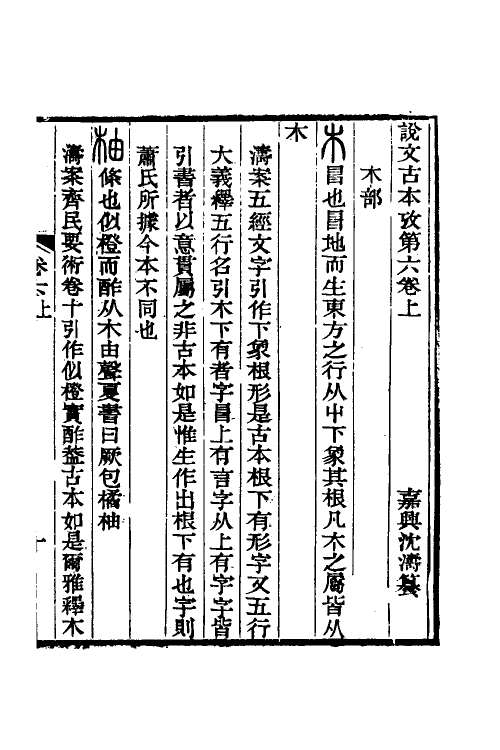 說文古本攷第六卷上　嘉興沈濤纂
木部
木冒也冒地而生東方之行从屮下象其根凡木之屬皆从
木
濤案五經文字引作下象根形是古本根下有形字又五行
大義釋五行名引木下有者字冒上有言字从上有字字皆
引書者以意貫屬之非古本如是惟生作出根下有也字則
蕭氏所據今本不同也
柚條也似橙而酢从木由聲夏書曰厥包橘柚
濤案齊民要術卷十引作似橙實酢葢古本如是爾雅釋木
卷六上
一